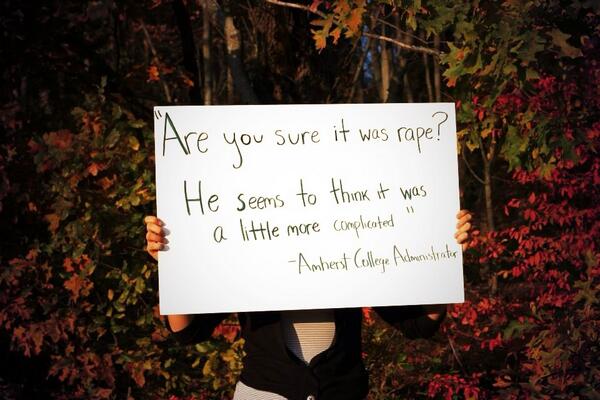 "Are you sure it was rape?
He seems to think it was
a little more complicated"
-Amherst College Administrator